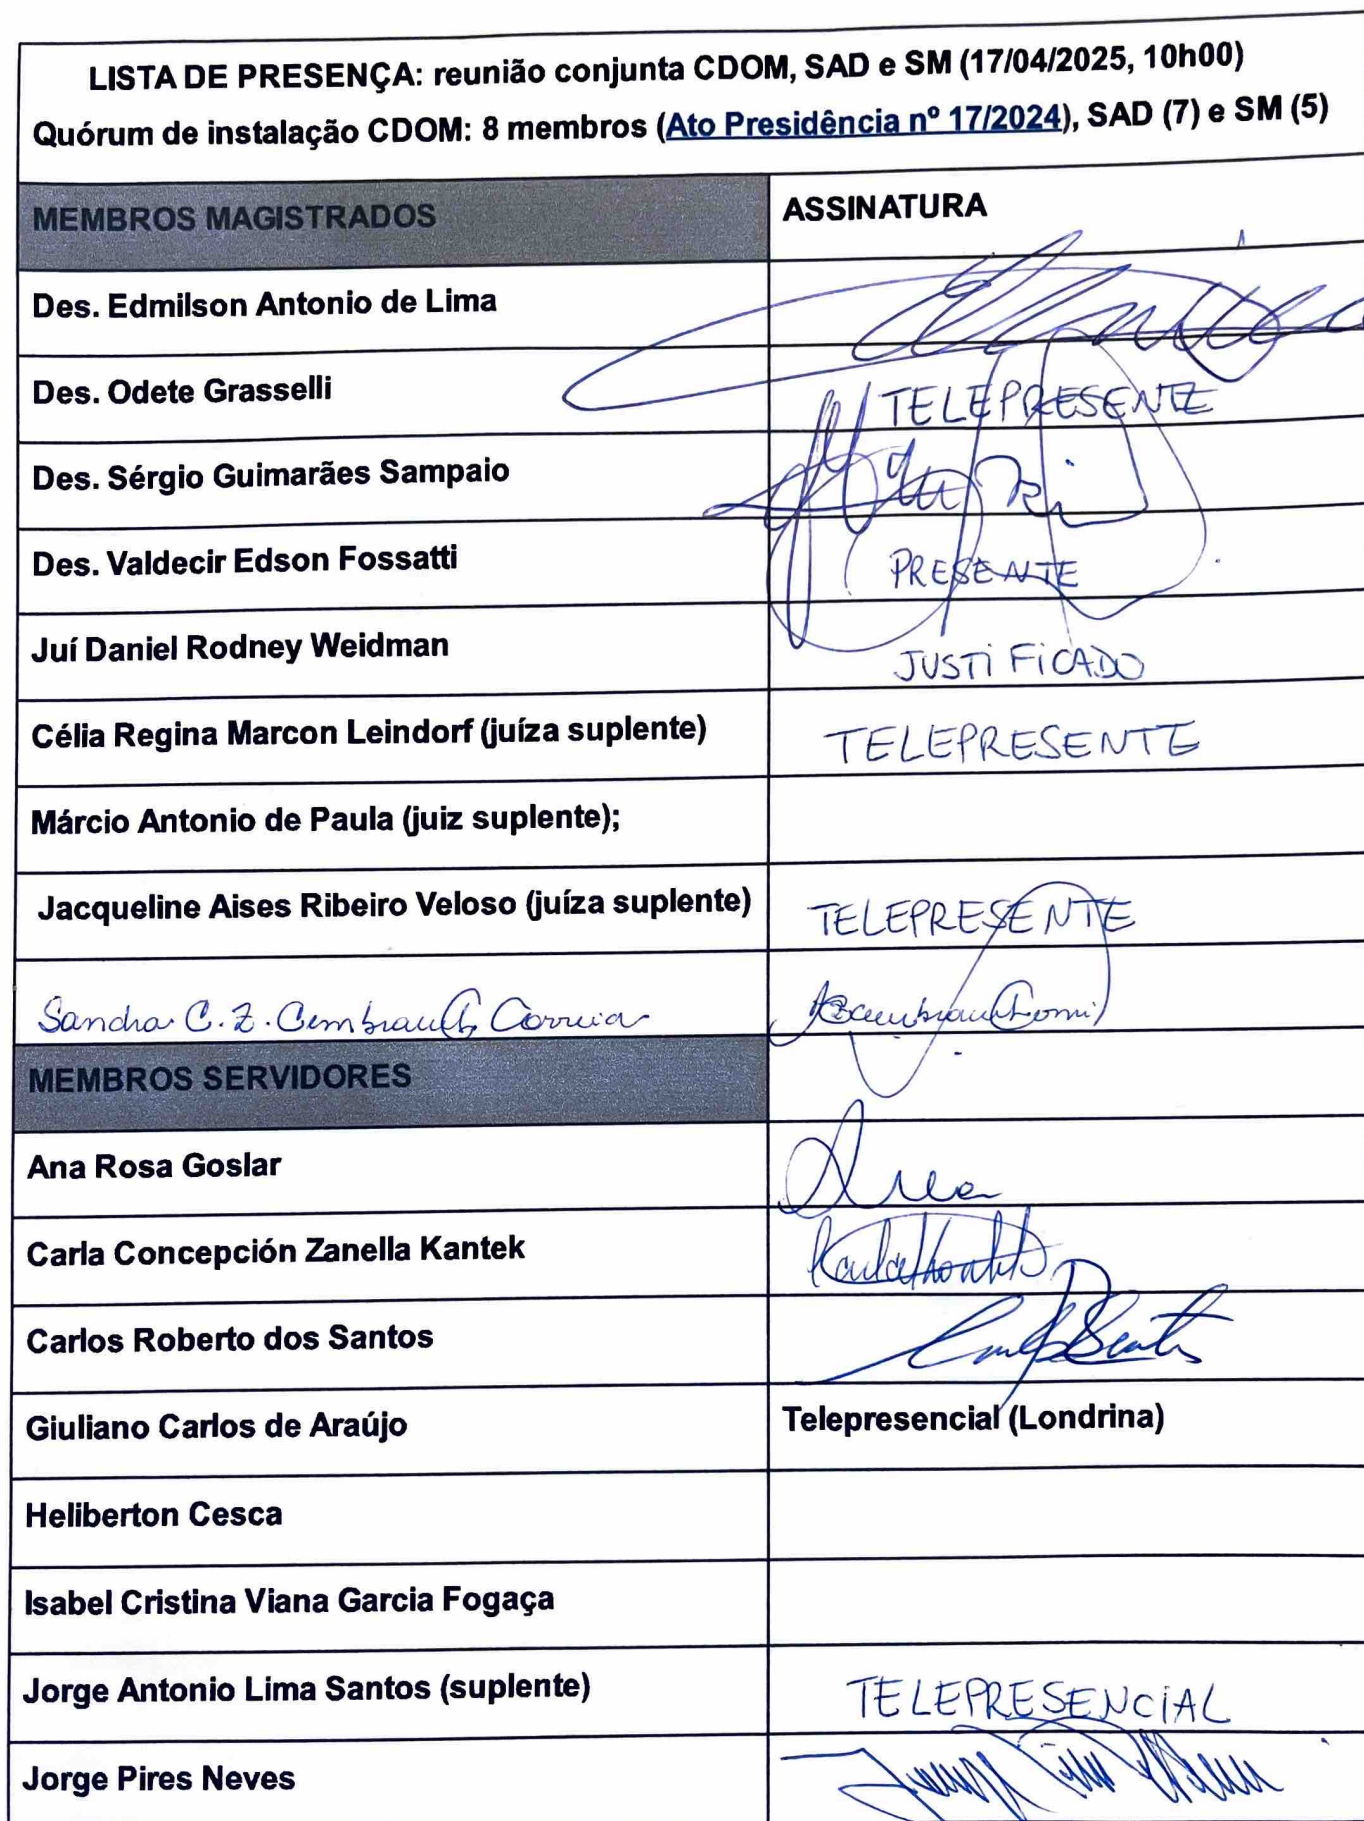 LISTA DE PRESENÇA: reunião conjunta CDOM, SAD e SM (17/04/2025, 10h00)
Quórum de instalação CDOM: 8 membros (Ato Presidência nº 17/2024), SAD (7) e SM (5)
MEMBROS MAGISTRADOS ASSINATURA
Des. Edmilson Antonio de Lima
Des. Odete Grasselli TELEPRESENTE
Des. Sérgio Guimarães Sampaio
Des. Valdecir Edson Fossatti PRESENTE
Juí Daniel Rodney Weidman JUSTiFiCADO
Célia Regina Marcon Leindorf (juíza suplente) TELEPRESENTE
Márcio Antonio de Paula (juiz suplente);
Jacqueline Aises Ribeiro Veloso (juíza suplente) TELEPRESENTE
Sandra C. Z. Correia
MEMBROS SERVIDORES
Ana Rosa Goslar
Carla Concepción Zanella Kantek
Carlos Roberto dos Santos
Giuliano Carlos de Araújo Telepresencial (Londrina)
Heliberton Cesca
Isabel Cristina Viana Garcia Fogaça
Jorge Antonio Lima Santos (suplente) TELEPRESENCiAL
Jorge Pires Neves